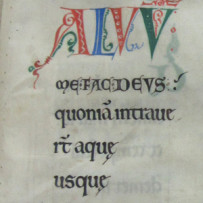 SALVV
ME FAC DEVS:
quoniā intraue
rt̄ aquę
usquę